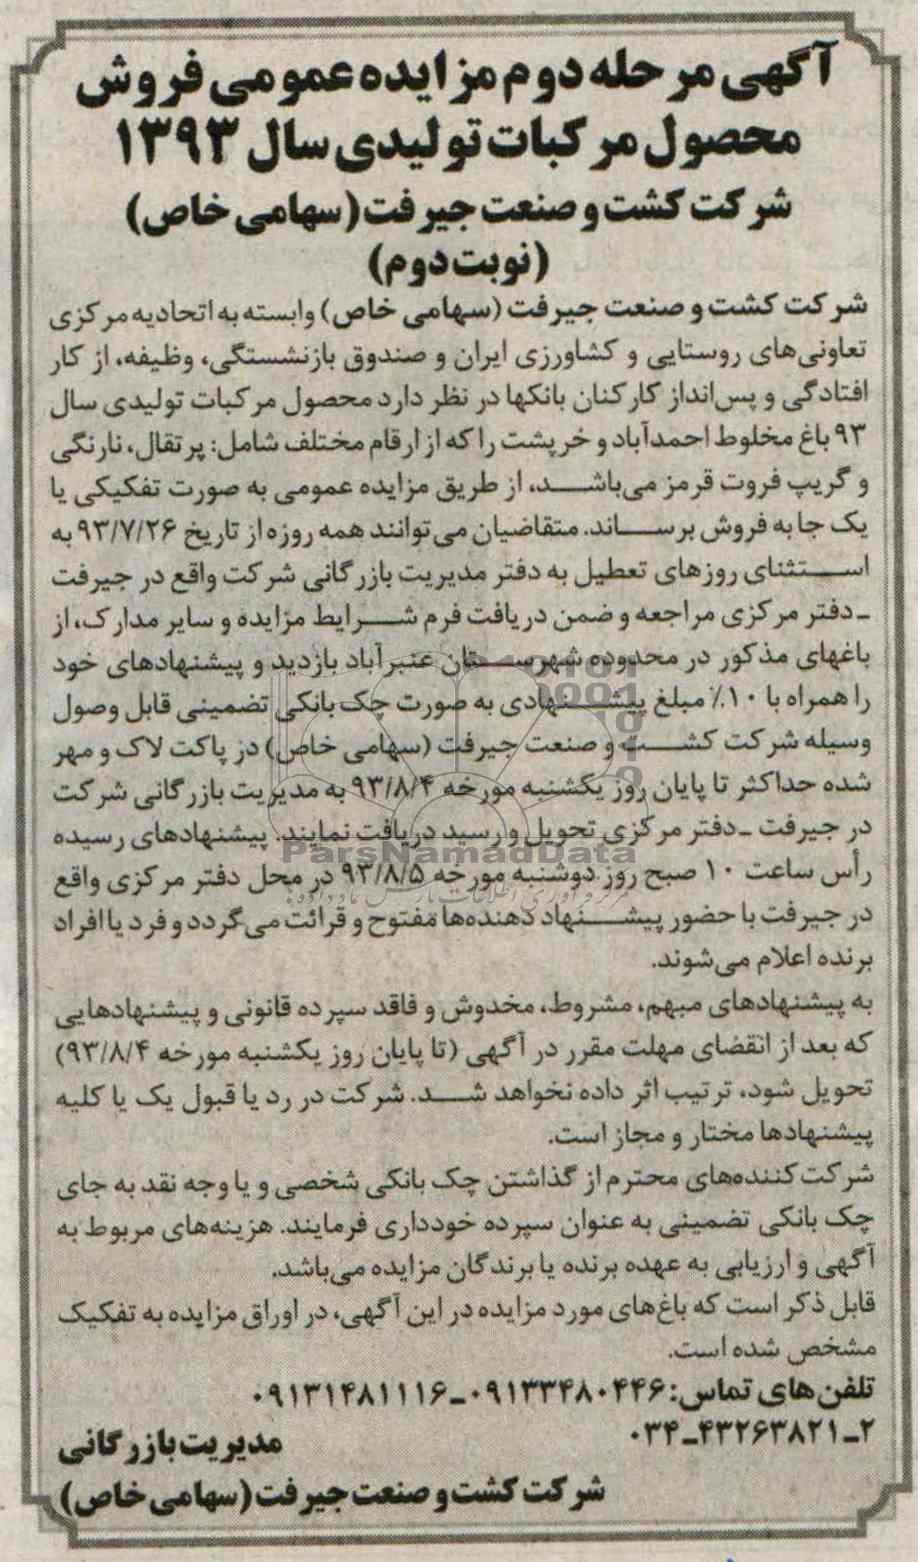 آگهی مرحله دوم مزایده عمومی فروش
محصول مرکبات تولیدی سال ۱۳۹۳
شرکت کشت و صنعت جیرفت (سهامی خاص)
(نوبت دوم)
شرکت کشت و صنعت جیرفت (سهامی خاص) وابسته به اتحادیه مرکزی
تعاونی‌های روستایی و کشاورزی ایران و صندوق بازنشستگی، وظیفه، از کار
افتادگی و پس‌انداز کارکنان بانکها در نظر دارد محصول مرکبات تولیدی سال
۹۳ باغ مخلوط احمدآباد و خرپشت را که از ارقام مختلف شامل: پرتقال، نارنگی
و گریپ فروت قرمز می‌باشد، از طریق مزایده عمومی به صورت تفکیکی یا
یک جا به فروش برساند. متقاضیان می‌توانند همه روزه از تاریخ ۹۳/۷/۲۶ به
استثنای روزهای تعطیل به دفتر مدیریت بازرگانی شرکت واقع در جیرفت
ـ دفتر مرکزی مراجعه و ضمن دریافت فرم شرایط مزایده و سایر مدارک، از
باغهای مذکور در محدوده شهرستان عنبرآباد بازدید و پیشنهادهای خود
را همراه با ۱۰٪ مبلغ پیشنهادی به صورت چک بانکی تضمینی قابل وصول
وسیله شرکت کشت و صنعت جیرفت (سهامی خاص) در پاکت لاک و مهر
شده حداکثر تا پایان روز یکشنبه مورخه ۹۳/۸/۴ به مدیریت بازرگانی شرکت
در جیرفت ـ دفتر مرکزی تحویل و رسید دریافت نمایند. پیشنهادهای رسیده
رأس ساعت ۱۰ صبح روز دوشنبه مورخه ۹۳/۸/۵ در محل دفتر مرکزی واقع
در جیرفت با حضور پیشنهاد دهنده‌ها مفتوح و قرائت می‌گردد و فرد یا افراد
برنده اعلام می‌شوند.
به پیشنهادهای مبهم، مشروط، مخدوش و فاقد سپرده قانونی و پیشنهادهایی
که بعد از انقضای مهلت مقرر در آگهی (تا پایان روز یکشنبه مورخه ۹۳/۸/۴)
تحویل شود، ترتیب اثر داده نخواهد شد. شرکت در رد یا قبول یک یا کلیه
پیشنهادها مختار و مجاز است.
شرکت‌کننده‌های محترم از گذاشتن چک بانکی شخصی و یا وجه نقد به جای
چک بانکی تضمینی به عنوان سپرده خودداری فرمایند. هزینه‌های مربوط به
آگهی و ارزیابی به عهده برنده یا برندگان مزایده می‌باشد.
قابل ذکر است که باغ‌های مورد مزایده در این آگهی، در اوراق مزایده به تفکیک
مشخص شده است.
تلفن‌های تماس: ۰۹۱۳۳۴۸۰۴۴۶ـ۰۹۱۳۱۴۸۱۱۱۶
۰۳۴ـ۴۳۲۶۳۸۲۱ـ۲
مدیریت بازرگانی
شرکت کشت و صنعت جیرفت (سهامی خاص)
ParsNamadData